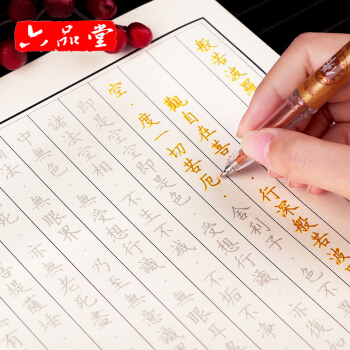 六品堂
般若波羅
觀自在菩
行深般若波
空。度一切苦厄。舍利子。色不
即是空。空即是色。受想行識。亦
諸法空相。不生不滅。不垢不淨
中無色。無受想行識。無眼耳
法。無眼界。乃至無意識
死。亦無老死盡
提薩埵